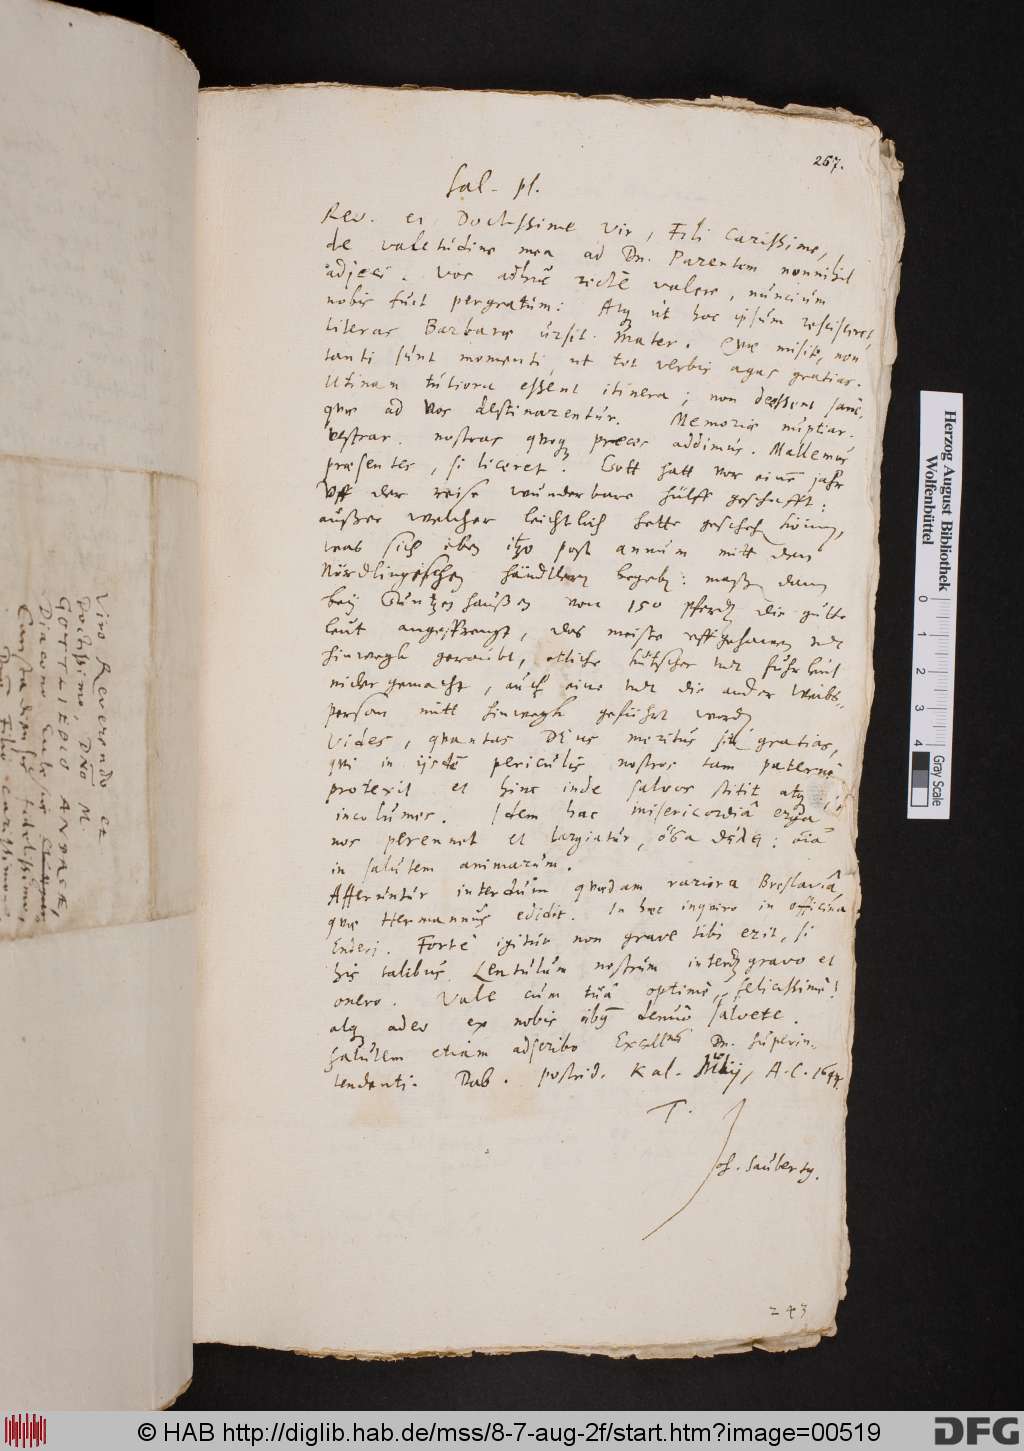 267.
Sal. pl.
Rev. et Doctissime Vir, Fili Carissime,
de valetudine mea ad Dn. Parentem nonnihil
adjeci. Vos adhuc recte valere, nuncium
nobis fuit pergratum: Atq ut hoc ipsum rescisceret,
literas Barbarae misit. Mater. Quae misit, non
tanti sunt momenti, ut tot verbis agas gratias.
Utinam tutiora essent itinera; non deessent sane,
quae ad vos destinarentur. Memoriae nuptiar.
vestrar. nostras quoq preces addimus. Mallemus
praesentes, si liceret. Gott hatt vor eine Jahr
vff der reise wunderbare hülff geschafft:
außer welcher leichtlich hette gescheh können,
was sich eben itzo post annum mitt den
Nördlingischen händlern begeb: maßen dann
bey Guntzenhaußen von 150 pferd die gutte
leut angesprengt, das meiste vffgehauen vnd
hinwegk geraubt, etliche kutscher vnd fuhrleut
nidergemacht, auch eine vnd die ander Weibs-
person mitt hinwegk geführt word
Vides, quantas Deus meritus sit gratias,
qui in iisde periculis nostros tam paterne
protexit et hinc inde salvos stitit atq
incolumes. Idem hac misericordiâ erga
nos perennet et largiatur, ὅσα : oia
in salutem animarum.
Afferuntur interdum quaedam rariora Breslaviâ,
quae Hermannus edidit. In haec inquiro in officina
Enderi. Forte igitur non grave tibi erit, si
his talibus Lentulum nostrum interd gravo et
onero. Vale cum tuâ optime, felicissime!
atq adeo ex nobis denuo salvete.
Salutem etiam adscribo Excellmo Dn. Superin-
tendenti. Dab. postrid. Kal. Julij, A. C. 1644.
T.
Joh. Saubertq.
243
Viro Reverendo et
Doctissimo, Dno M.
GOTTLIEBO ANDREAE,
Diacono
Filio carissimo
Herzog August Bibliothek
Wolfenbüttel
0 1 2 3 4
Gray Scale
© HAB http://diglib.hab.de/mss/8-7-aug-2f/start.htm?image=00519
DFG